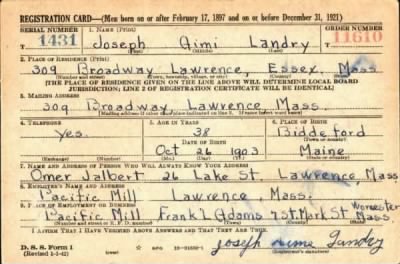 REGISTRATION CARD—(Men born on or after February 17, 1897 and on or before December 31, 1921)
SERIAL NUMBER 1. NAME (Print) ORDER NUMBER
1431 Joseph Aimi Landry 11610
(First) (Middle) (Last)
2. PLACE OF RESIDENCE (Print)
309 Broadway Lawrence, Essex, Mass
(Number and street) (Town, township, village, or city) (County) (State)
[THE PLACE OF RESIDENCE GIVEN ON THE LINE ABOVE WILL DETERMINE LOCAL BOARD
JURISDICTION; LINE 2 OF REGISTRATION CERTIFICATE WILL BE IDENTICAL]
3. MAILING ADDRESS
309 Broadway Lawrence Mass.
[Mailing address if other than place indicated on line 2. If same insert word same]
4. TELEPHONE 5. AGE IN YEARS 6. PLACE OF BIRTH
yes. 38 Biddeford
DATE OF BIRTH (Town or county)
Oct 26 1903 Maine
(Exchange) (Number) (Mo.) (Day) (Yr.) (State or country)
7. NAME AND ADDRESS OF PERSON WHO WILL ALWAYS KNOW YOUR ADDRESS
Omer Jalbert 26 Lake St. Lawrence, Mass
8. EMPLOYER'S NAME AND ADDRESS
Pacific Mill Lawrence, Mass.
9. PLACE OF EMPLOYMENT OR BUSINESS
Pacific Mill Frank L Adams 7 St. Mark St Worcester Mass.
(Number and street or R. F. D. number) (Town) (County) (State)
I AFFIRM THAT I HAVE VERIFIED ABOVE ANSWERS AND THAT THEY ARE TRUE.
D. S. S. Form 1
(Revised 1-1-42)
Joseph Aime Landry
(Registrant's signature)